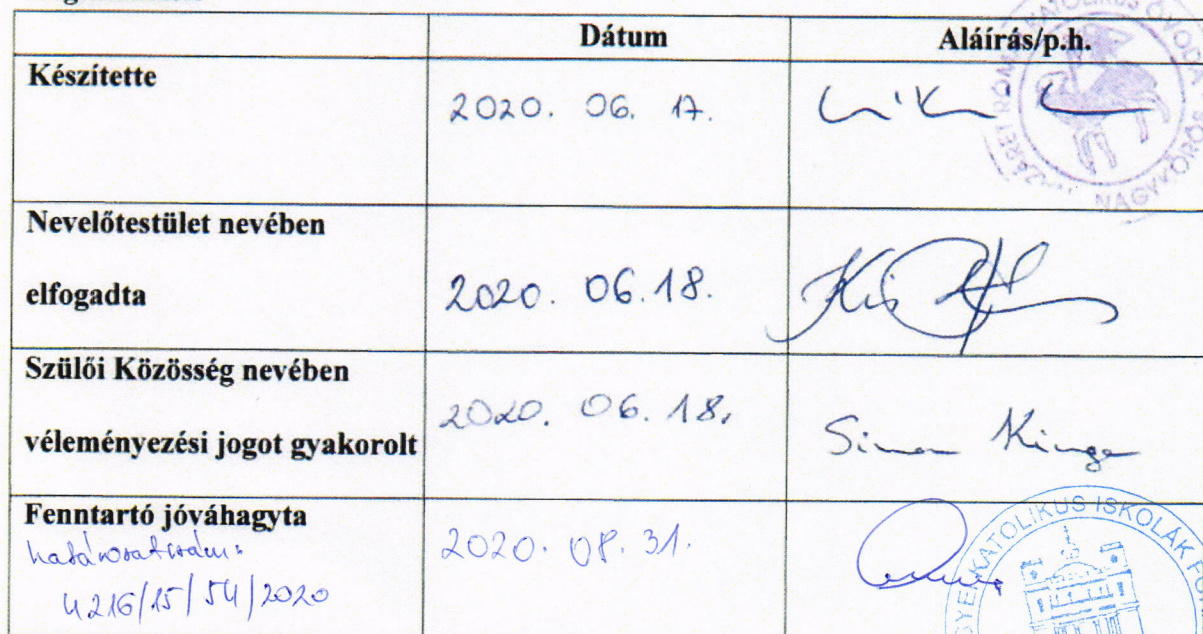 Dátum
Aláírás/p.h.
Készítette
2020. 06. 17.
KATOLIKUS ÓVODA
NAGYKŐRÖS
Nevelőtestület nevében
elfogadta
2020. 06.18.
Kis
Szülői Közösség nevében
véleményezési jogot gyakorolt
2020. 06. 18.
Simon Kinga
Fenntartó jóváhagyta
határozatszám:
4216/15/54/2020
2020. 08. 31.
KATOLIKUS ISKOLÁK